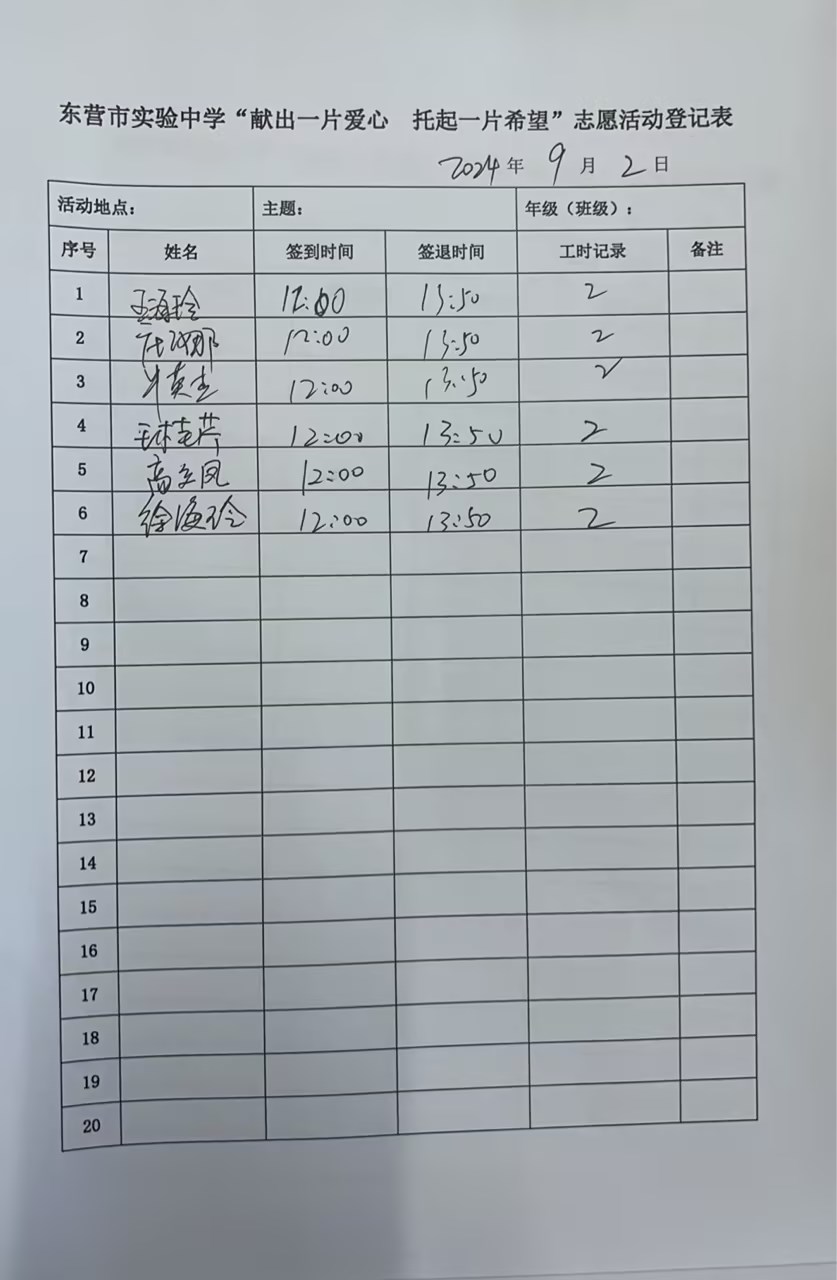 东营市实验中学“献出一片爱心 托起一片希望”志愿活动登记表
2024年 9月 2日
活动地点： 主题： 年级（班级）：
序号 姓名 签到时间 签退时间 工时记录 备注
1 王海玲 12:00 13:50 2
2 12:00 13:50 2
3 12:00 13:50 2
4 12:00 13:50 2
5 高立凤 12:00 13:50 2
6 徐海玲 12:00 13:50 2
7
8
9
10
11
12
13
14
15
16
17
18
19
20